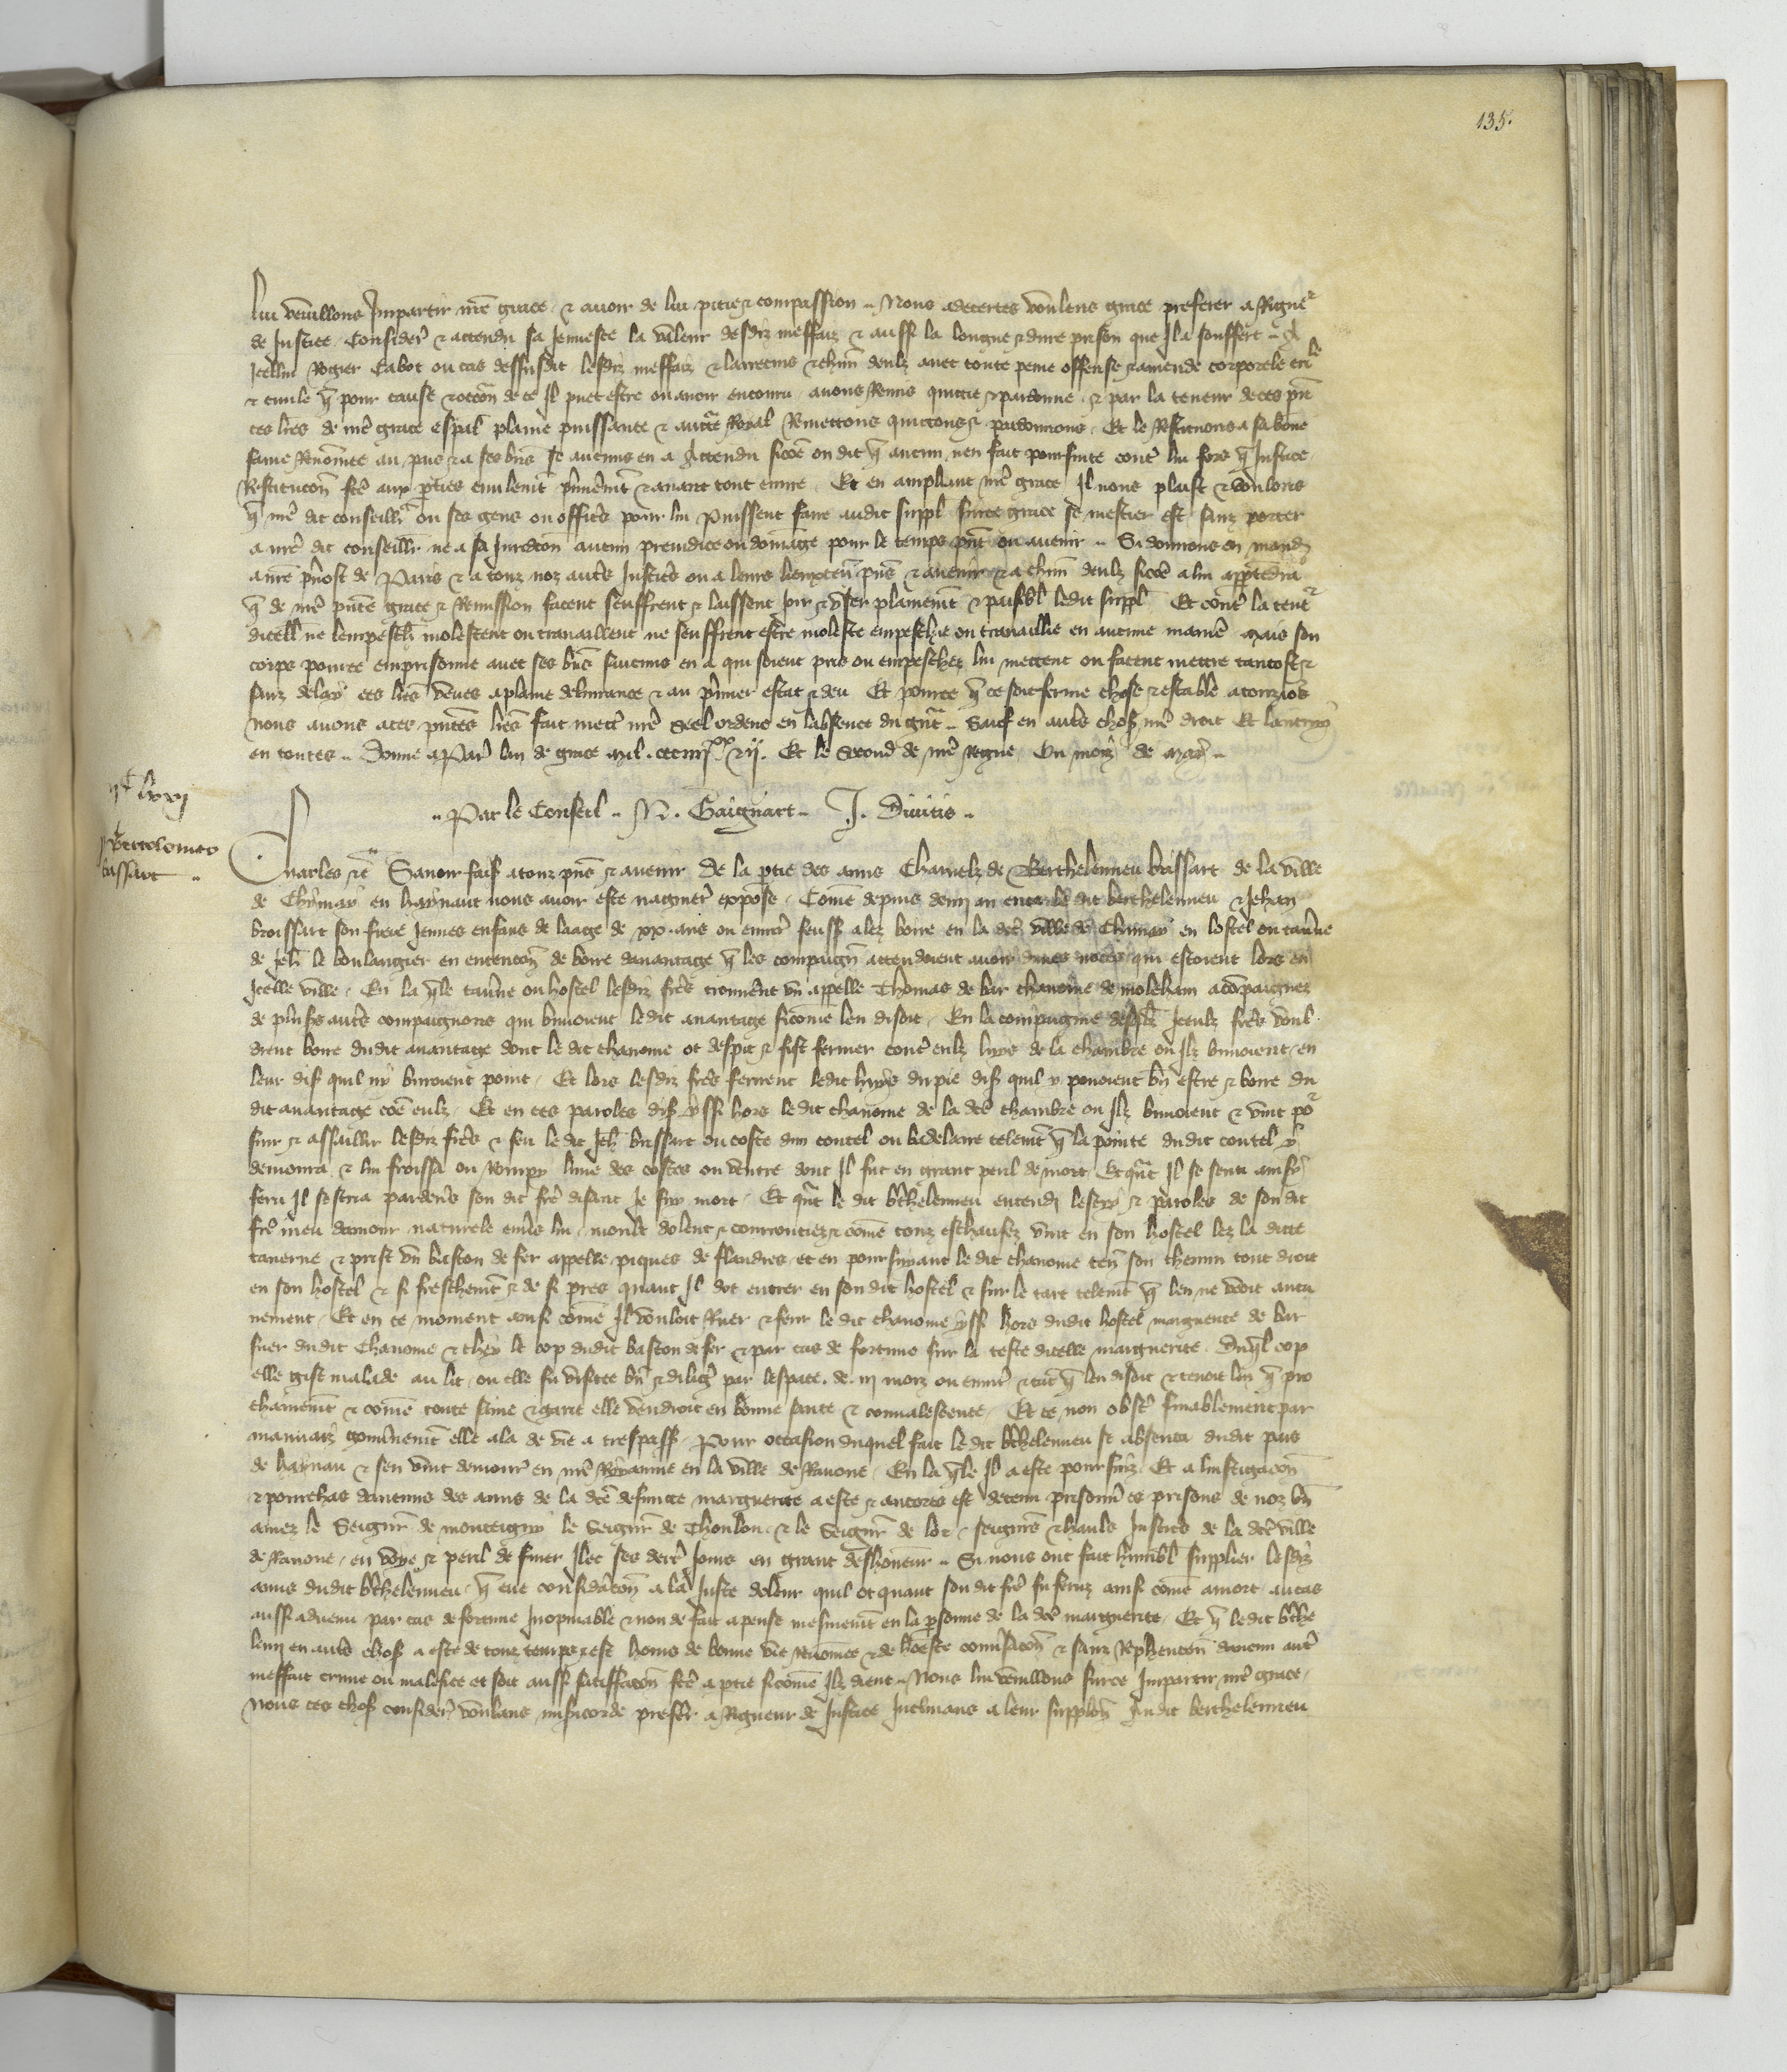 135.
lui veuillons Impartir nr̃e grace ⁊ avoir de lui pitie ⁊ compassion .. Nous adecertes voulens grace preferer a Riguer
de Justice Consideré ⁊ attendu sa Jeunesce la valeur desdiz meffaiz ⁊ aussi la longue ⁊ dure prison que Il a souffert .. A
Icellui Rogier Cabot ou cas dessusdit lesdiz meffaiz ⁊ larrecins ⁊ chũn deulz avec toute peine offense ⁊ amende corporele crile
⁊ civile q̃ pour cause ⁊ occõn de ce Il puet estre ou avoir encouru avons Remis quictie ⁊ pardonne . ⁊ par la teneur de ces pñ
ces lr̃es de nr̃e grace esp̃al plaine puissance ⁊ auct̃e Royal Remettons quictons ⁊ pardonnons . Et le Restituons a sa bõne
fame Renõmee au pais ⁊ a ses bñs se aucuns en a Attendu sicõe on dit q̃ aucun nen fait poursuite cont̃ lui fors q̃ Justice
Restitucõn fc̃e aux p̃ties civilemt̃ p̃mierem̃t ⁊ avant tout euvre . Et en ampliant nr̃e grace Il nous plaist ⁊ voulons
q̃ nr̃e dit conseillr̃ ou ses gens ou officr̃s pour lui puissent faire audit suppl̃ ... grace se mestier est sanz porter
a nr̃e dit conseillr̃ ne a sa Juridicõn aucun preiudice ou domage pour le temps pñt ou avenir .. Si donnons en mandt̃
a nr̃e p̃vost de Paris ⁊ a touz noz aut̃s Justicr̃s ou a leurs lieuxten̄ pñs ⁊ avenir ⁊ a chũn deulz sicõe a lui app̃tedra
q̃ de nr̃e pñte grace ⁊ Remission facent seuffrent ⁊ laissent Joir ⁊ user plainemt̃ ⁊ paisibl̃ ledit suppl̃ Et cont̃ la tenr̃
dicell̃ ne lempesch̃ molestent ou travaillent ne seuffrent estre moleste empeschie ou travaillie en aucune maniẽ mais son
corps pource emprisonne avec ses bñs saucuns en a qui soient pris ou empeschez lui mettent ou facent mettre tantost ⁊
sanz delay ces lr̃es veues a plaine delivrance ⁊ au p̃mier estat ⁊ deu Et pource q̃ ce soit ferme chose ⁊ estable a touziors
nous avons a ces pñtes lr̃es fait mett̃ nr̃e Seel ordene en labsence du gñt .. Sauf en aut̃s choses nr̃e droit Et lautruy
en toutes .. Donne a Paris lan de grace mil . ccc iiijxx ⁊ ij . Et le Second de nr̃e Regne Ou mois de may ..
.. Par le Conseil .. N . Gaignart .. J . Divitis ..
Bertolomeo
bassart ..
Charles ⁊c̃ Savoir faisons a touz pñs ⁊ avenir De la p̃tie des amis Charnelz de Berthelemieu brissart de la ville
de Chymay en haynaut nous avoir este naguer̃ exposé . Cõme depuis demi an enca ledit berthelemieu ⁊ Jehan
broissart son frere Jeunes enfans de laage de xx . ans ou envir̃ feuss̃ alez boire en la dc̃e ville de Chimay en lostel ou tav̂ne
de Jeh̃ le boulangier en entencõn de boire davantage q̃ les compaign̄ attendoient avoir dunes noces qui estoient lors en
Icelle ville . En la q̃le tav̂ne ou hostel lesdiz fr̃es trouverent un appelle Thomas de bar chanoine de molehain acõpaignez
de plus̃s aut̃s compaignons qui buvoient ledit avantage sicõme len disoit . En la compaignie desq̃lx Iceulx fr̃es voul
drent boire dudit avantage dont le dit chanoine ot despit ⁊ fist fermer cont̃ eulz luys de la chambre ou Ilz buvoient en
leur dis̃ quil ny buroient point . Et lors lesdiz fr̃es ferirent ledit huys du pie dis̃ quil y povoient bñ estre ⁊ boire du
dit avantage cõe eulz . Et en ces paroles dis̃ yssi hors le dit chanoine de la dc̃e chambre ou Ilz buvoient ⁊ vint po͛
suir ⁊ assaillir lesdiz fr̃es ⁊ feri le dit Jeh̃ brissart ou coste dun coutel ou badelaire telemt̃ q̃ la pointe dudit coutel y
demoura ⁊ lui froissa ou Rompy lune des costes ou ventre dont Il fut en grant peril de mort Et qñt Il se senti ainsy
feru Il sescria par devers son dit fr̃e disant Je suy mort . Et qñt le dit b̃thelemieu entendi lescry ⁊ paroles de son dit
fr̃e meu damour naturele env̂s lui moult dolent ⁊ courrouciez ⁊ cõme touz eschaufez vint en son hostel lez la dicte
taverne ⁊ prist un baston de fer appelle piques de flandres et en poursuivant le dit chanoine teñ son chemin tout droit
en son hostel ⁊ si freschemt̃ ⁊ de si pres quant Il dot entrer en son dit hostel ⁊ sur le tart telemt̃ q̃ len ne veoit aucu
nement . Et en ce moment ainsi cõme Il vouloit Ruer ⁊ ferir le dit chanoine yssi hors dudit hostel marguerite de bar
suer dudit Chanoine ⁊ cheÿ le cop dudit baston de fer ⁊ par cas de fortune sur la teste dicelle marguerite . Duq̃l cop
elle gist malade au lit ou elle fu visitee bñ ⁊ diligẽ par lespace . de . iij mois ou envir̃ ⁊ tãt q̃ len disoit ⁊ tenoit len q̃ pro
chainemt̃ ⁊ cõme toute saine ⁊ garie elle vendroit en bonne sante ⁊ convalescence . Et ce non obst̃ finablement par
mauvaiz gouv̂nemt̃ elle ala de vie a trespass̃ . Pour occasion duquel fait le dit b̃thelemieu se absenta dudit pais
de haynau ⁊ sen vint demour̃ en nr̃e Royaume en la ville de Ravone . En la q̃le Il a este poursuiz . Et a linstigacõn
⁊ pourchas daucuns des amis de la dc̃e defuncte marguerite a este ⁊ ancores est detenu prisonñ es prisons de noz bñ
amez le Seigñr de monteigny le Seigñr de Thoulon . ⁊ le Seigñr de lor . seigñrs ⁊ haulz Justicr̃s de la dc̃e ville
de Ravone . en voye ⁊ peril de finer Ilec ses derr̃ Jours en grant deshoneur .. Si nous ont fait humbl̃ supplier lesdiz
amis dudit b̃thelemieu . q̃ eue consid̃acõn a la Juste doleur quil ot quant son dit fr̃e fu feruz ainsi cõme a mort au cas
aussi advenu par cas de fortune Inopinable ⁊ non de fait a pense mesmemt̃ en la p̃sonne de la dc̃e marguerite . Et q̃ ledit b̃the
lemi en aut̃s chos̃ a este de touz temps ⁊ est homs de bonne vie Renõmee ⁊ de hõneste conv̂sacõn ⁊ sanz Rep̃hencõn daucun aut̃
meffait crime ou malefice et soit aussi satiffacõn fc̃e a p̃tie sicõme Ilz dient .. Nous lui veuillons surce Impartir nr̃e grace .
Nous ces chos̃ consider̃ voulans mis̃icorde prefer̃ a Rigueur de Justice Inclinans a leur supplicõn Audit berthelemieu